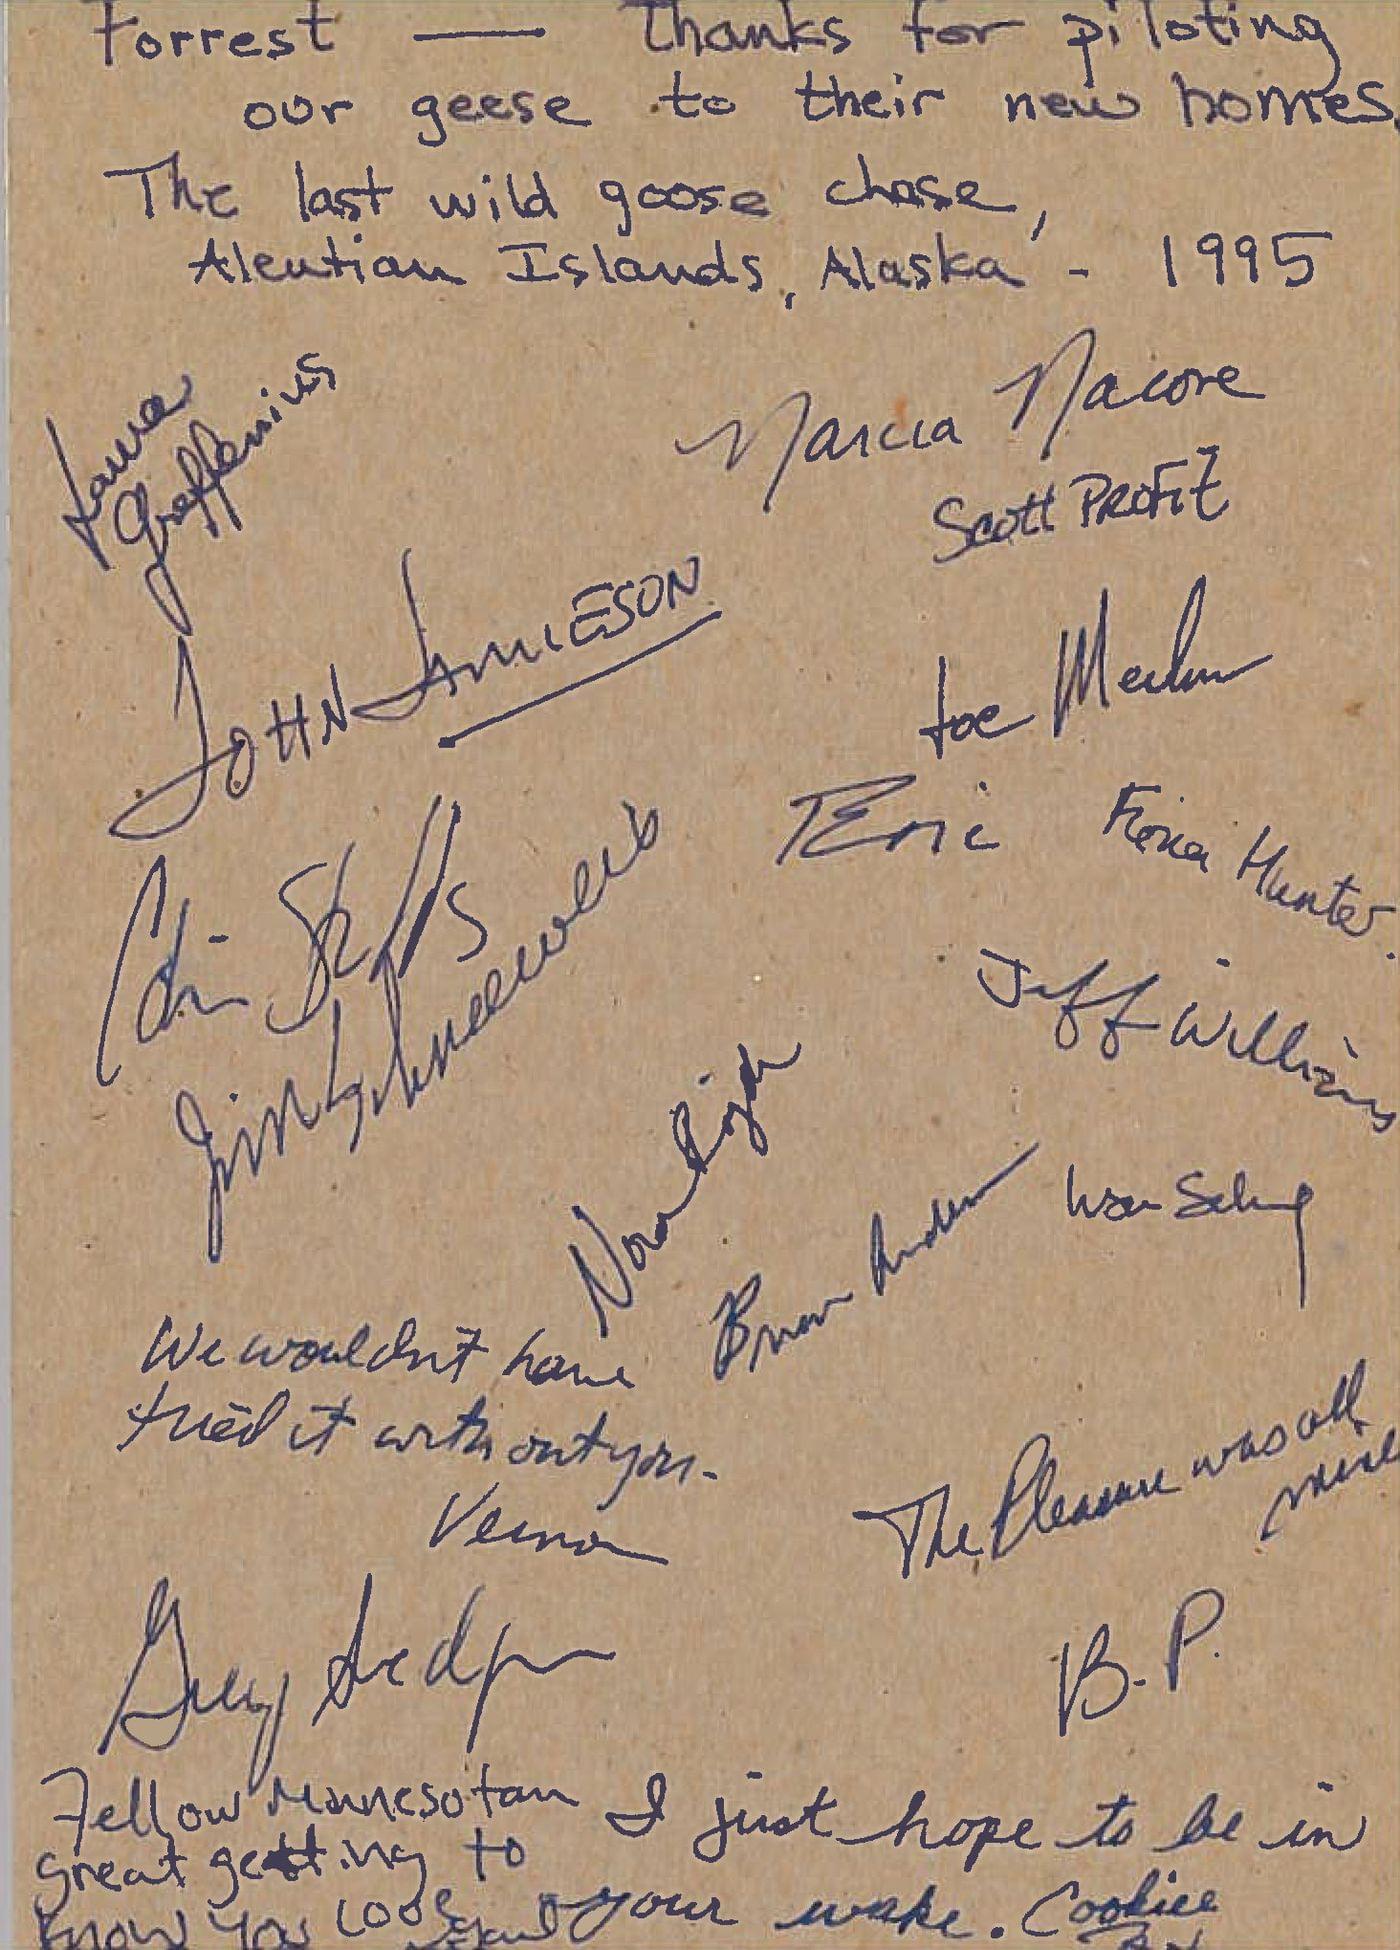 Forrest — Thanks for piloting
our geese to their new homes.
The last wild goose chase,
Aleutian Islands, Alaska - 1995
Laura
Greffenius
Marcia Macore
Scott PROFIT
JOHN JAMIESON
Joe
Eric
Fiona Hunter.
Colin
Jeff Williams
Jim Schneeweis
Nora
Brian Anderson
We wouldn't have
tried it without you.
Vernon
The Pleasure was all
mine
B.P.
Fellow Minnesotan
great getting to
know you
I just hope to be in
your wake. Cookie